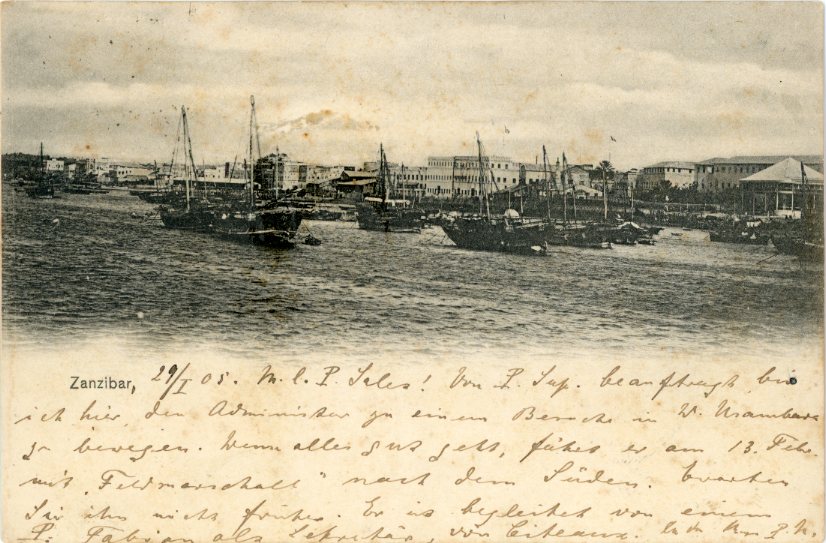 Zanzibar, 29/I 05. M. l. P. Sales! Von P. Sup. beauftragt bin
ich hier, den Administer zu einem Besuche in W. Usambara
zu bewegen. Wenn alles gut geht, fährt er am 13. Febr.
mit "Feldmarschall" nach dem Süden. Erwarten
Sie ihn nicht früher. Er ist begleitet von einem
P. Fabian als Sekretär, von Citeaux.